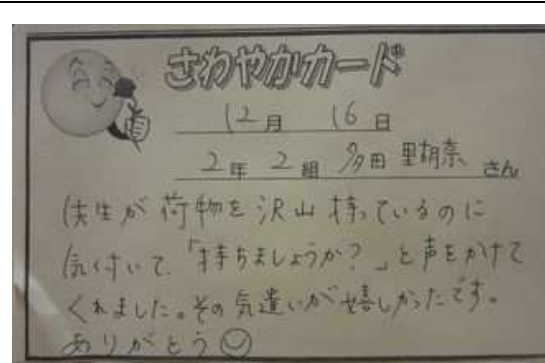 さわやかカード
12月 16日
2年 2組 多田 里胡奈 さん
先生が荷物を沢山持っているのに
気付いて、「持ちましょうか?」と声をかけて
くれました。その気遣いが嬉しかったです。
ありがとう